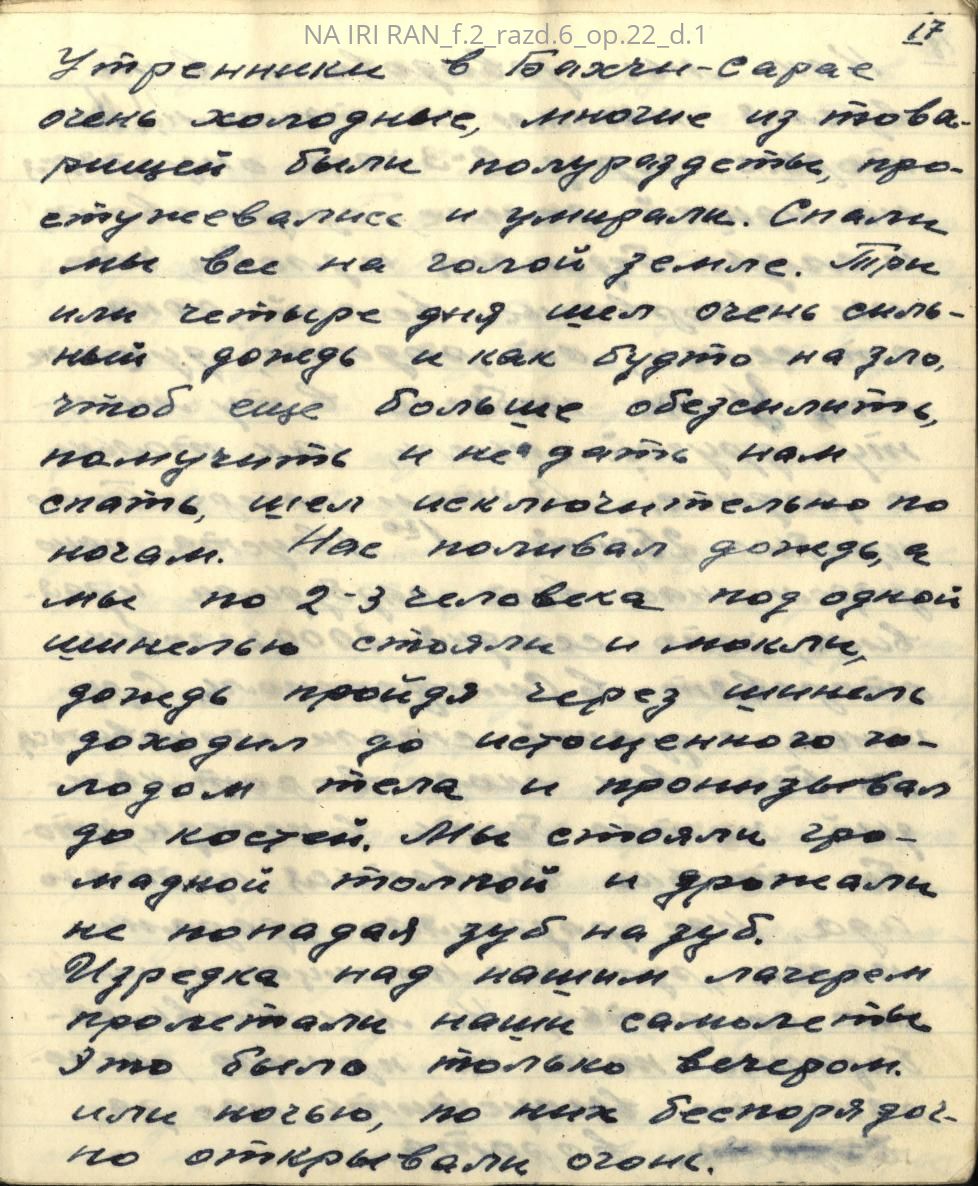 NA IRI RAN_f.2_razd.6_op.22_d.1
17
Утренники в Бахчи-сарае
очень холодные, многие из това-
рищей были полураздеты, про-
стужевались и умирали. Спали
мы все на голой земле. Три
или четыре дня шел очень силь-
ный дождь и как будто на зло,
чтоб еще больше обезсилить,
помучить и не дать нам
спать, шел исключительно по
ночам. Нас поливал дождь, а
мы по 2-3 человека под одной
шинелью стояли и мокли,
дождь пройдя через шинель
доходил до истощенного го-
лодом тела и пронизывал
до костей. Мы стояли гро-
мадной толпой и дрожали
не попадая зуб на зуб.
Изредка над нашим лагерем
пролетали наши самолеты
Это было только вечером.
или ночью, по ним беспорядоч-
но открывали огонь.